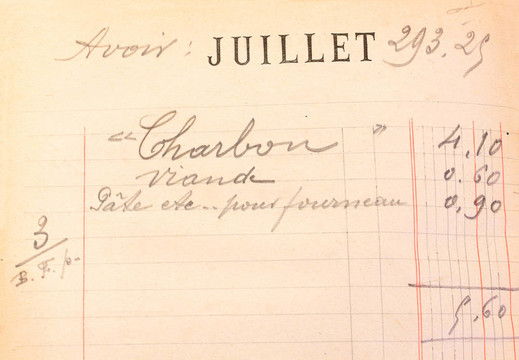 Avoir : JUILLET 293.25
" Charbon " 4.10
viande 0.60
Pâte etc.. pour fourneau 0,90
3/
5,60